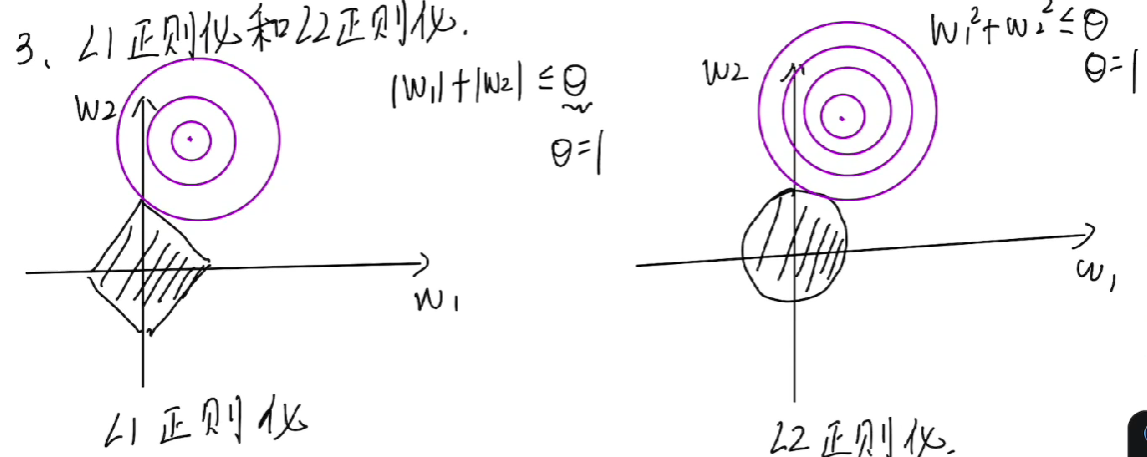 3、L1正则化和L2正则化.
|w₁|+|w₂| ≤ θ
θ=1
w2
w₁
L1正则化
w₁²+w₂² ≤ θ
θ=1
w2
w₁
L2正则化.